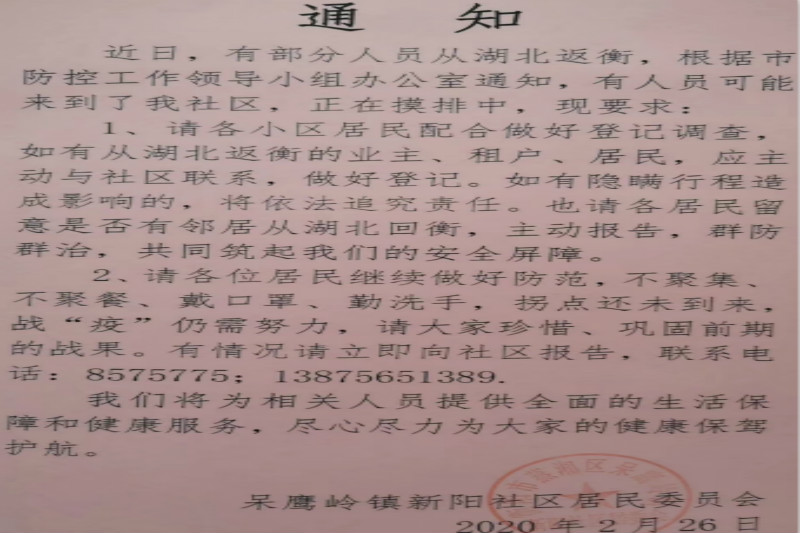 通 知
近日，有部分人员从湖北返衡，根据市
防控工作领导小组办公室通知，有人员可能
来到了我社区，正在摸排中，现要求：
1、请各小区居民配合做好登记调查，
如有从湖北返衡的业主、租户、居民，应主
动与社区联系，做好登记。如有隐瞒行程造
成影响的，将依法追究责任。也请各居民留
意是否有邻居从湖北回衡，主动报告，群防
群治，共同筑起我们的安全屏障。
2、请各位居民继续做好防范，不聚集、
不聚餐、戴口罩、勤洗手，拐点还未到来，
战“疫”仍需努力，请大家珍惜、巩固前期
的战果。有情况请立即向社区报告，联系电
话：8575775；13875651389.
我们将为相关人员提供全面的生活保
障和健康服务，尽心尽力为大家的健康保驾
护航。
呆鹰岭镇新阳社区居民委员会
2020 年 2 月 26 日